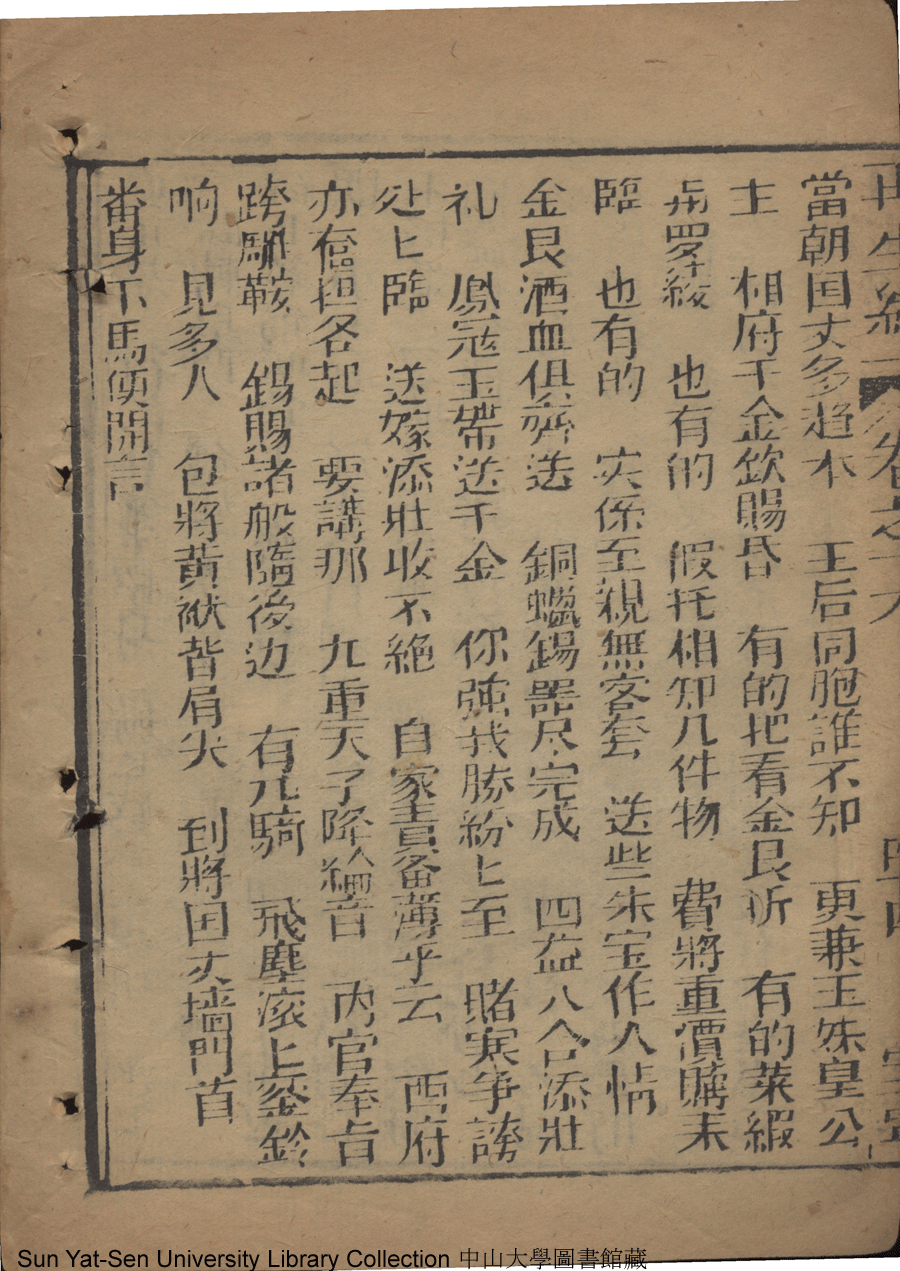 再生緣 卷之十六
當朝囯丈多趋本 王后同胞誰不知 更兼玉姝皇公
主 相府千金欽賜昏 有的把看金艮折 有的菜緞
共罗綾 也有的 假托相知几件物 費將重價贖未
臨 也有的 实係至親無客套 送些朱宝作人情
金艮酒血俱齊送 銅蠟錫器尽完成 四盆八合添壯
礼 鳳冠玉帶送千金 你強我勝紛〻至 賭寒爭誇
处〻臨 送嫁添壯收不絕 自家責备薄乎云 西府
亦奩担各起 要講那 九重天子降綸音 內官奉旨
跨雕鞍 錫賜諸般隨後边 有元騎 飛塵滚〻銮鈴
响 見多人 包將黄袱背肩尖 到將囯丈墻門首
番身下馬便開言
Sun Yat-Sen University Library Collection 中山大學圖書館藏